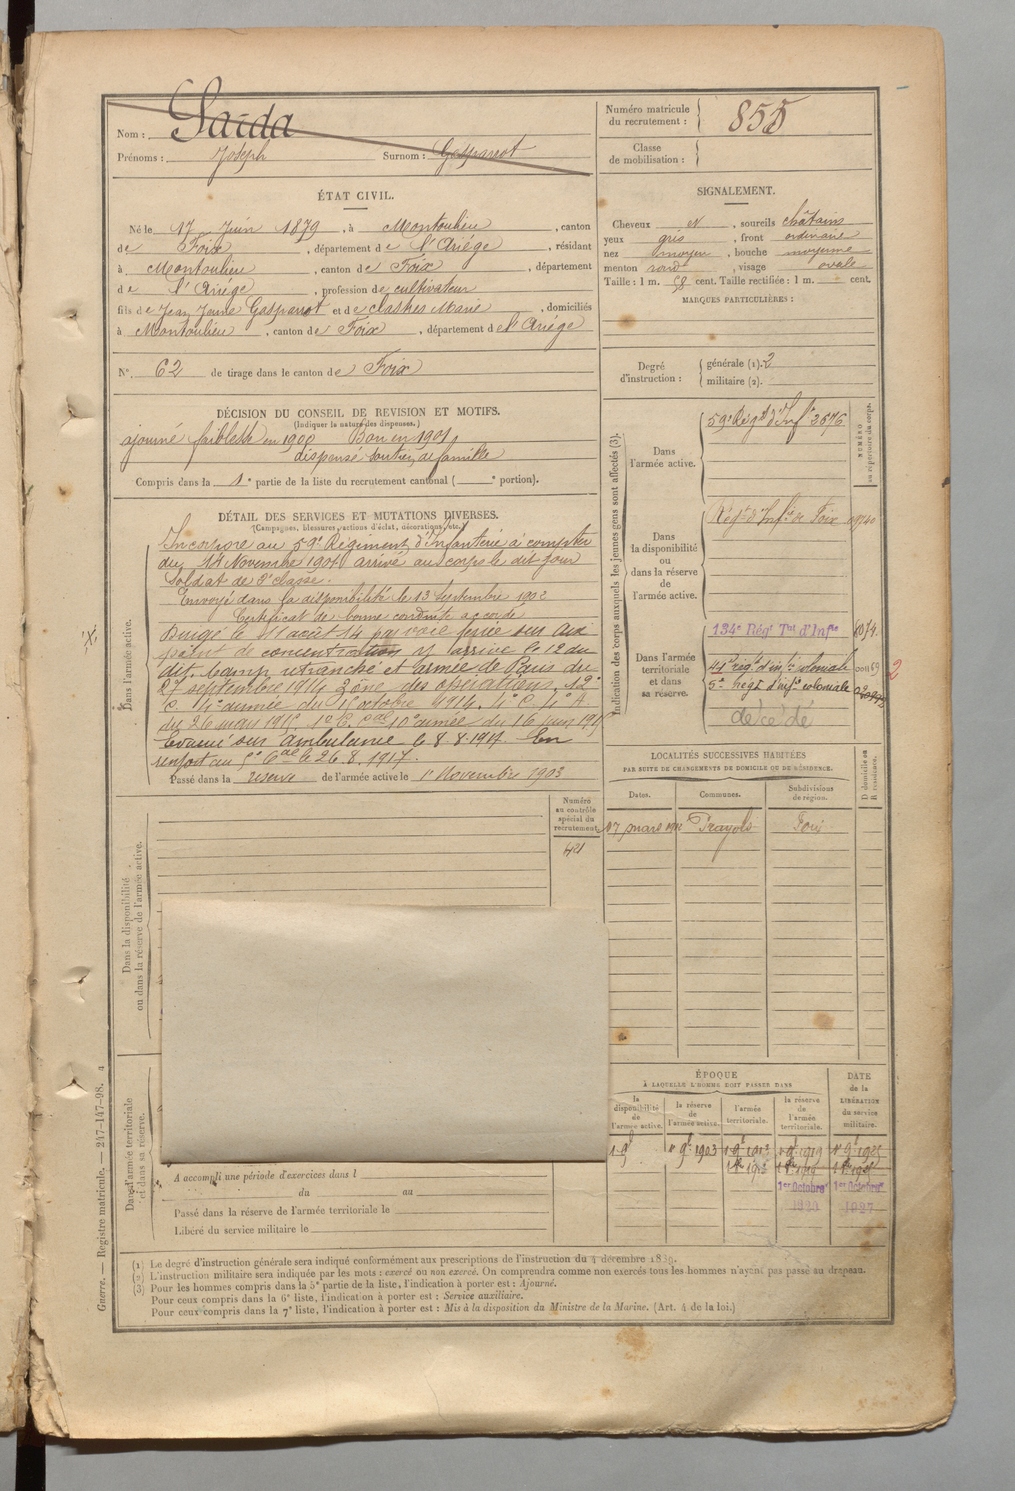 Nom : Saïda
Prénoms : Joseph Surnom : Gasparrot
Numéro matricule du recrutement : 855
Classe de mobilisation :
ÉTAT CIVIL.
Né le 17 Juin 1879, à Montoulieu, canton
de Foix, département de l'Ariège, résidant
à Montoulieu, canton de Foix, département
de l'Ariège, profession de cultivateur
fils de Jean, Gasparrot et de Marie, domiciliés
à Montoulieu, canton de Foix, département de l'Ariège
N° 62 de tirage dans le canton de Foix
SIGNALEMENT.
Cheveux N, sourcils châtains
yeux gris, front ordinaire
nez moyen, bouche moyenne
menton rond, visage ovale
Taille : 1 m. cent. Taille rectifiée : 1 m. cent.
MARQUES PARTICULIÈRES :
Degré d'instruction : générale (1). 2
militaire (2).
DÉCISION DU CONSEIL DE REVISION ET MOTIFS.
(Indiquer la nature des dispenses.)
ajourné faiblesse en 1900 Bon en 1901
dispensé soutien de famille
Compris dans la 1e partie de la liste du recrutement cantonal ( e portion).
DÉTAIL DES SERVICES ET MUTATIONS DIVERSES.
(Campagnes, blessures, actions d'éclat, décorations, etc.)
Dans l'armée active.
Incorporé au 59e Régiment d'Infanterie à compter
du 14 Novembre 1901 arrivé au corps le dit jour
Soldat de 2e classe.
Envoyé dans la disponibilité le 13 Septembre 1902
Certificat de bonne conduite accordé
Dirigé le 11 août 14 par voie ferrée sur
point de concentration y arrive le 12 du
dit. Camp retranché et armée de Paris du
27 septembre 1914 Zône des opérations. 12e
C. 4e armée du 1er octobre 1914. 4e C. 4e A.
du 26 mars 1915 1er C. Cal 10e armée du 16 juin 1915
Evacué sur Ambulance le 8.8.1917. En
renfort au 5e Cal le 26.8.1917.
Passé dans la réserve de l'armée active le 1er Novembre 1903
Indication des corps auxquels les jeunes gens sont affectés (3).
NUMÉRO au répertoire du corps.
Dans l'armée active.
59e Régt d'Infie 3676
Dans la disponibilité ou dans la réserve de l'armée active.
Régt d'Infie de Foix
Dans l'armée territoriale et dans sa réserve.
134e Régt Tal d'Infie
44e régt d'infie coloniale
5e Régt d'infie coloniale
décédé
2
LOCALITÉS SUCCESSIVES HABITÉES
PAR SUITE DE CHANGEMENTS DE DOMICILE OU DE RÉSIDENCE.
Dates. Communes. Subdivisions de région. D domicile ou R résidence.
17 mars Prayols Foix
Numéro au contrôle spécial du recrutement.
421
Dans la disponibilité ou dans la réserve de l'armée active.
Dans l'armée territoriale et dans sa réserve.
A accompli une période d'exercices dans l
du au
Passé dans la réserve de l'armée territoriale le
Libéré du service militaire le
ÉPOQUE
À LAQUELLE L'HOMME DOIT PASSER DANS
la disponibilité de l'armée active. la réserve de l'armée active. l'armée territoriale. la réserve de l'armée territoriale. DATE de la LIBÉRATION du service militaire.
1 9bre 1903 1 9bre 1913 1 9bre 1919 1 9bre 1925
1er Octobre 1er Octobre
1920 1927
(1) Le degré d'instruction générale sera indiqué conformément aux prescriptions de l'instruction du 4 décembre 1889.
(2) L'instruction militaire sera indiquée par les mots : exercé ou non exercé. On comprendra comme non exercés tous les hommes n'ayant pas passé au drapeau.
(3) Pour les hommes compris dans la 5e partie de la liste, l'indication à porter est : Ajourné.
Pour ceux compris dans la 6e liste, l'indication à porter est : Service auxiliaire.
Pour ceux compris dans la 7e liste, l'indication à porter est : Mis à la disposition du Ministre de la Marine. (Art. 4 de la loi.)
Guerre. — Registre matricule. — 247-147-98.